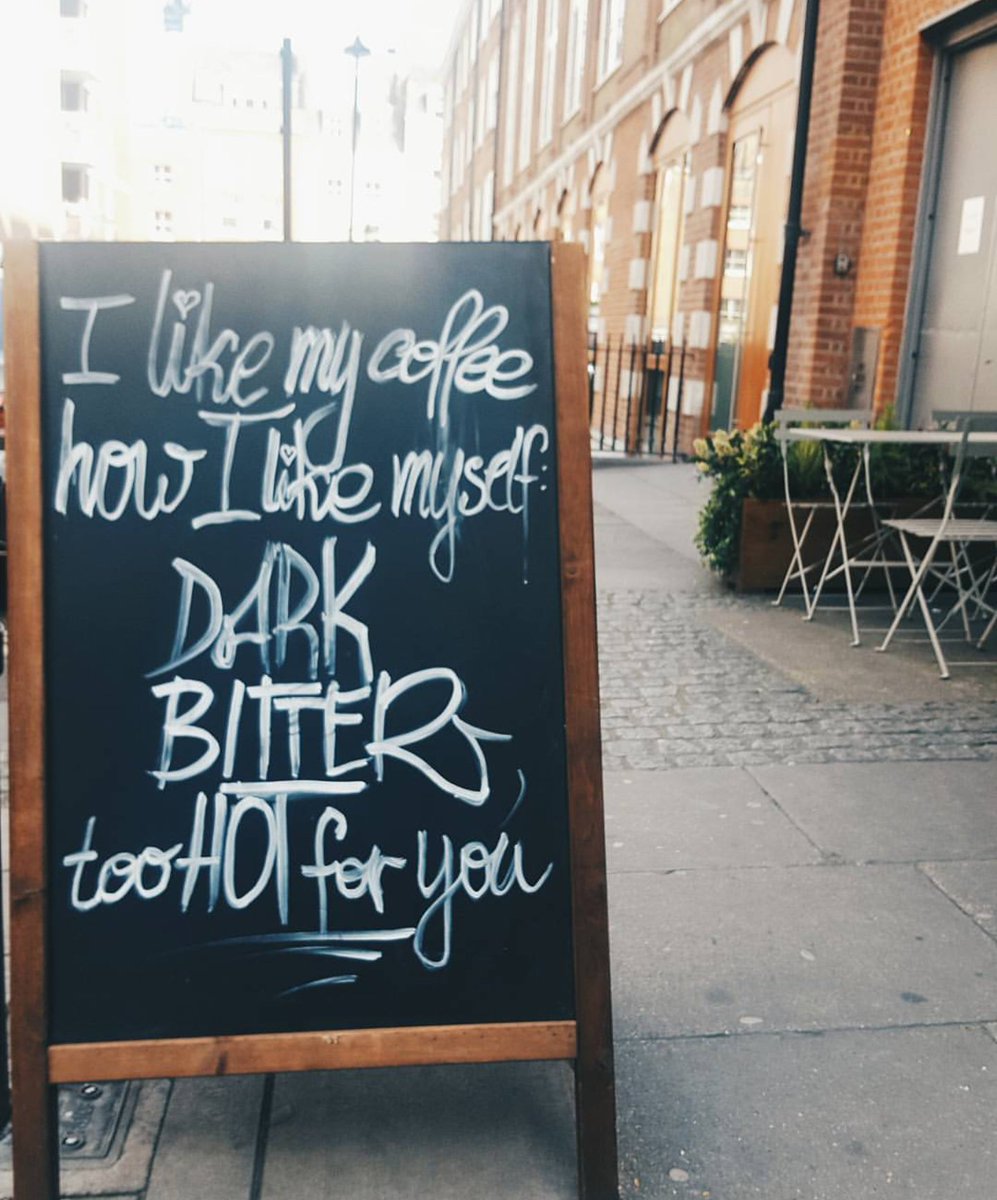 I like my coffee
how I like myself:
DARK
BITTER,
too HOT for you